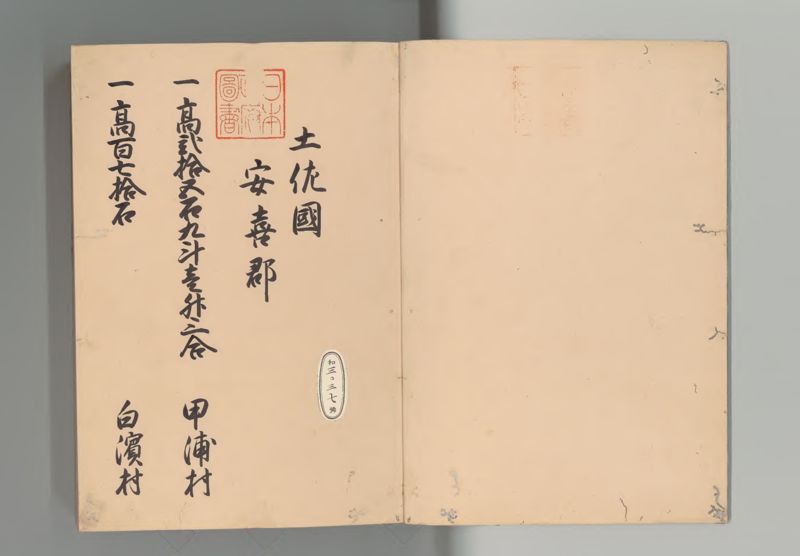 土佐國
安喜郡
日本
政府
圖書
一高弐拾五石九斗壱升三合 甲浦村
一高百七拾石 白濱村